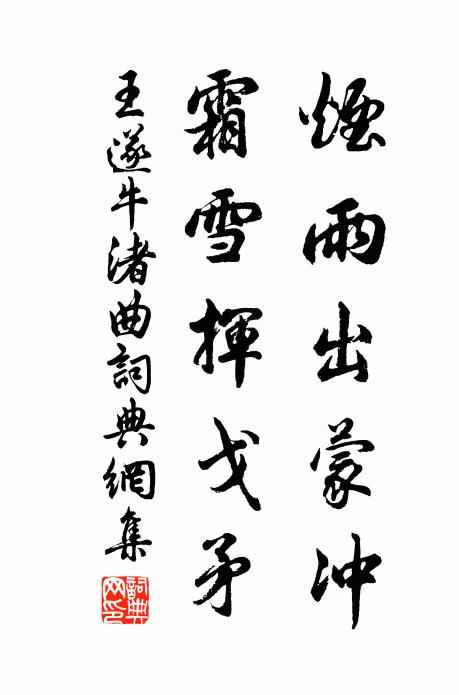 煙雨出蒙冲
霜雪揮戈矛
王遂牛渚曲詞典網集
詞典网印